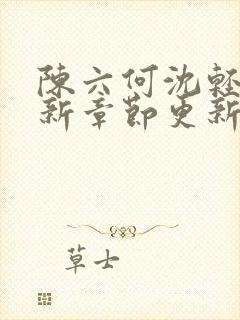 陳六何沈輕
新章節更新
草士